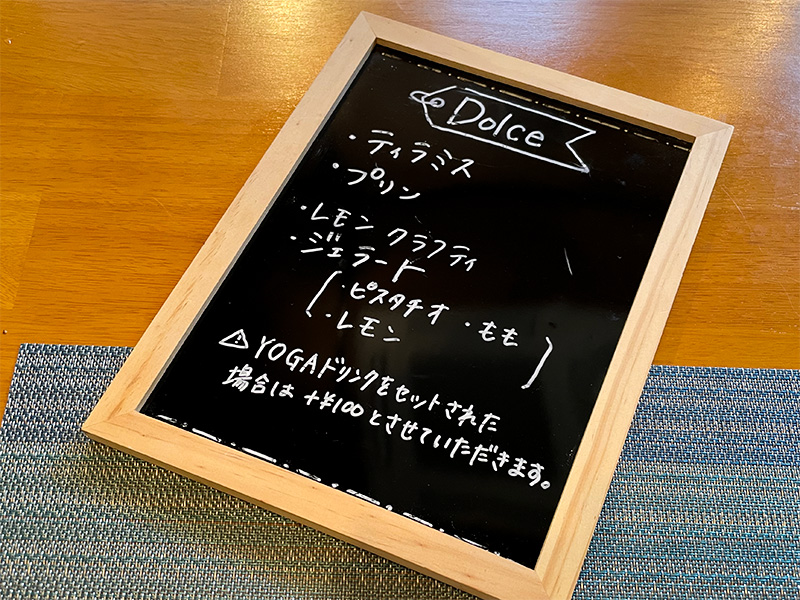 Dolce
・ティラミス
・プリン
・レモンクラフティ
・ジェラート
・ピスタチオ ・もも
・レモン
⚠YOGAドリンクをセットされた
場合は +¥100とさせていただきます。